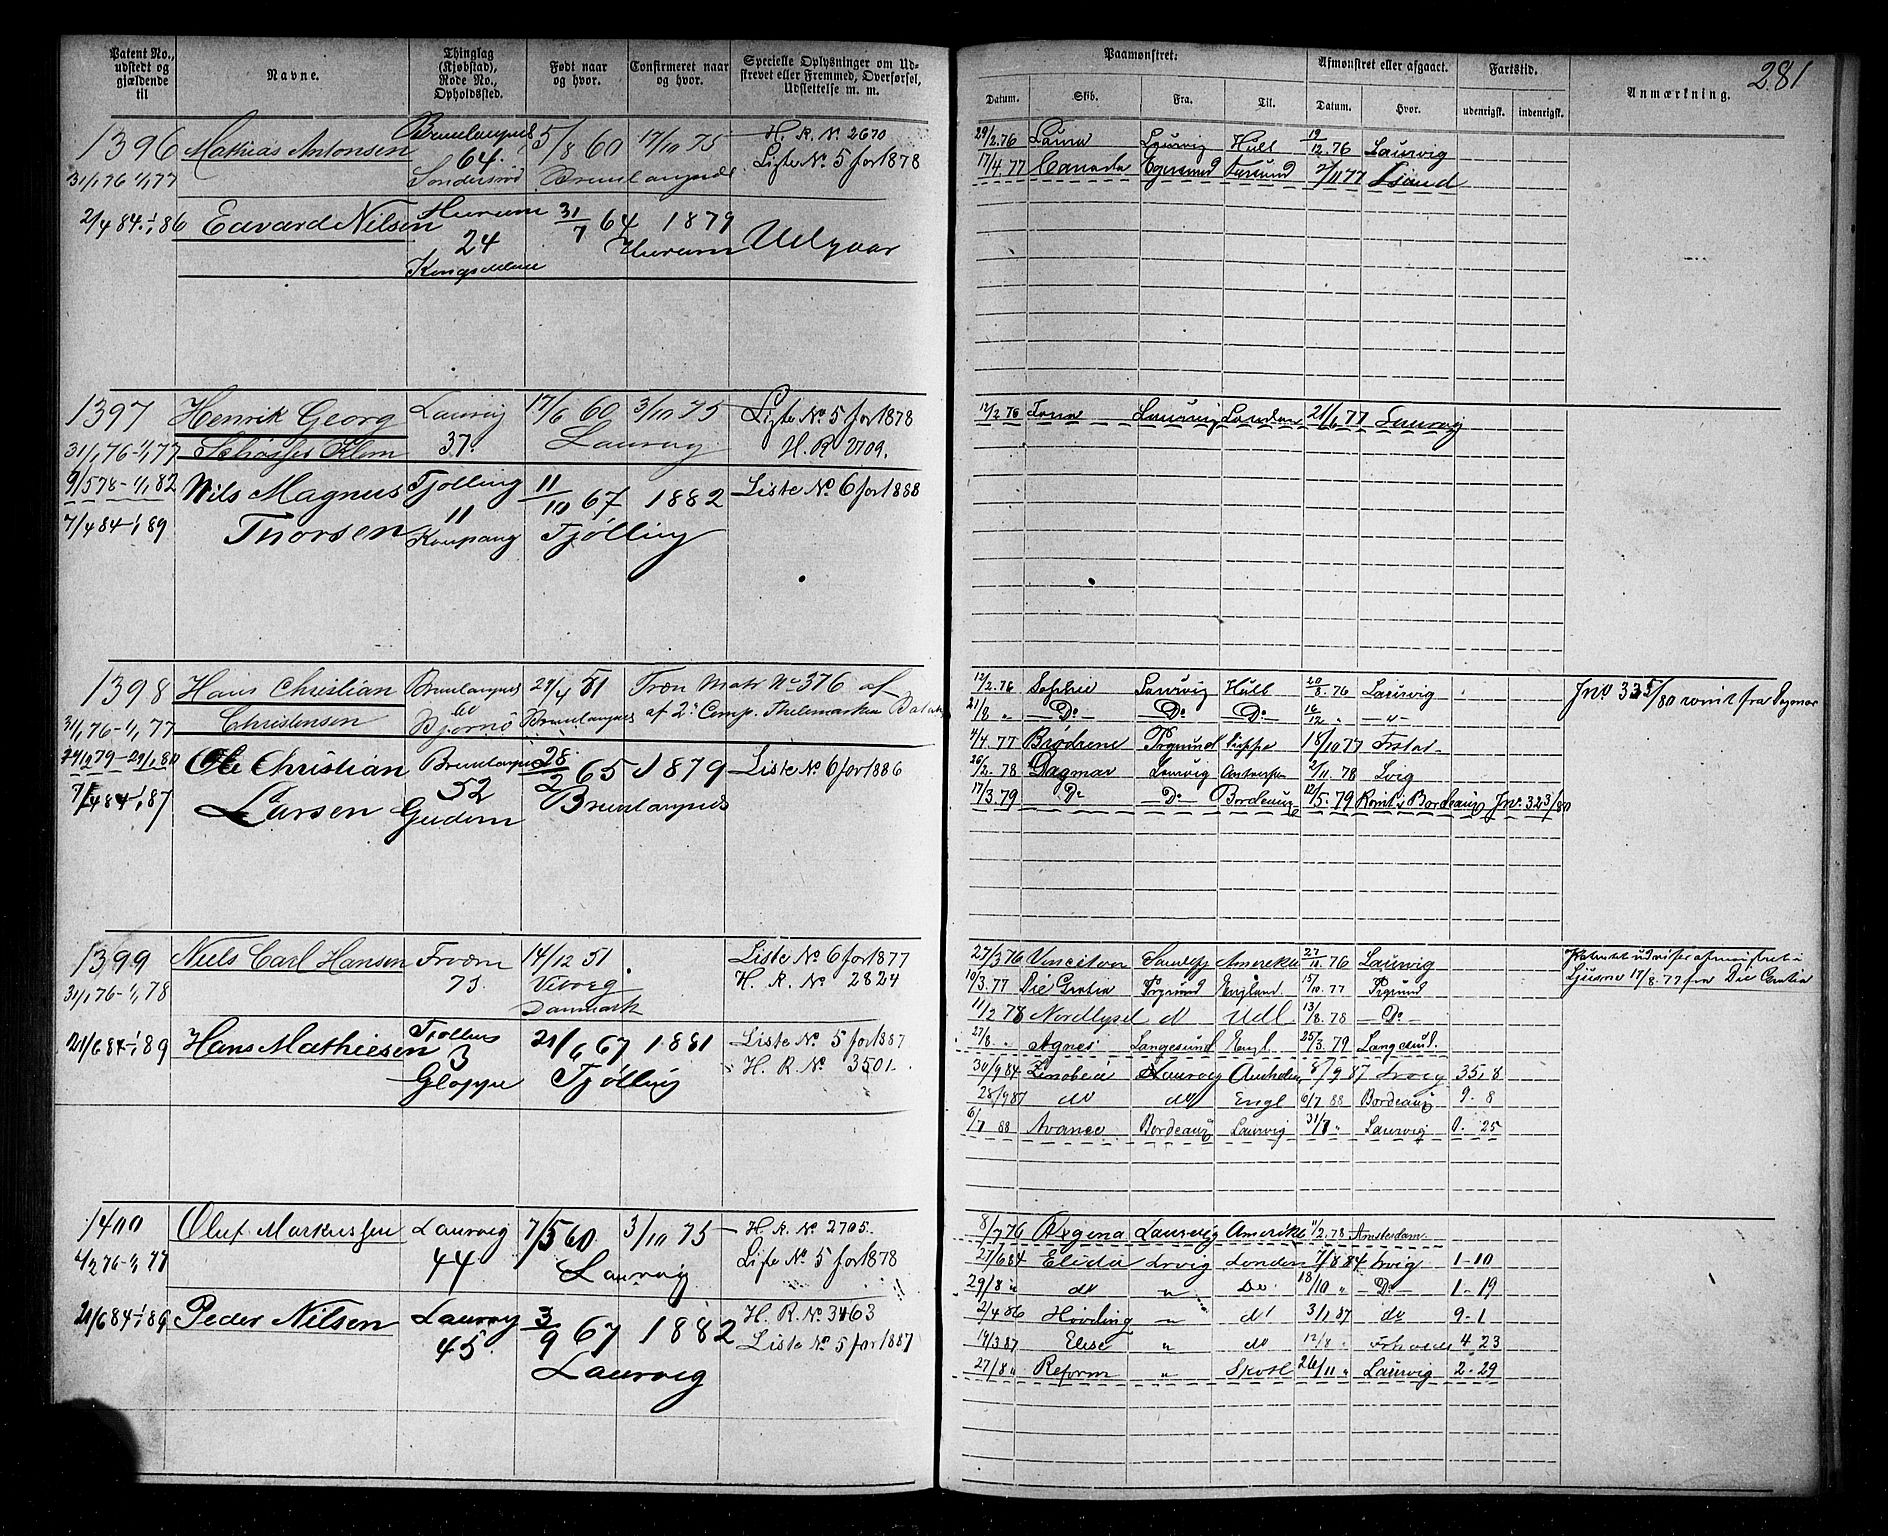 281
Patent No., udstedt og gjældende til
Navne.
Thinglag (Kjøbstad), Rode No., Opholdssted.
Født naar og hvor.
Confirmeret naar og hvor.
Specielle Oplysninger om Udskrevet eller Fremmed, Overførsel, Udslettelse m. m.
Paamønstret:
Afmønstret eller afgaaet.
Fartstid.
Anmærkning.
Datum. Skib. Fra. Til. Datum. Hvor. udenrigsk. indenrigsk.
1396 Mathias Antonsen Brunlaugnes 5/8 60 17/10 75 H. R. No 2670
64. Liste No 5 for 1878
31/1 76 1/1 77 Brunlaugnæs
29/2.76 Laura Laurvig Hull 19/12.76 Laurvig
17/4.77 Canada Egersund 2/11 77
2/4 84-1/1 86 Edvard Nilsen Hurum 31/7 64 1879
24 Hurum Udgaar
1397 Henrik Georg Laurvig 17/6 60 3/10 75 Liste No 5 for 1878
31/1 76-1/1 77 37. Laurvig H. R 2709.
12/2 76 Laurvig London 21/6 77 Laurvig
9/5 78-1/1 82 Nils Magnus Tjølling 11/10 67 1882 Liste No 6 for 1888
11
7/4 84-1/1 89 Thorsen Kaupang Tjølling
1398 Hans Christian Brunlaugnes 29/4 51 Træn Matr No 376 af
31/1 76-1/1 77 Christensen Bjørnø Brunlaugnes af 2. Comp. Thelemarken Bat
12/2.76 Sophie Laurvig Hull 20/8.76 Laurvig
21/8 " Do Do Do 16/12 " "
4/4.77 Brødrene 18/10 77
26/2.78 Dagmar Laurvig 2/11.78 Lvig
17/3.79 Do Do Bordeaux 12/5.79 Bordeaux Jnr. 323/80
Jnr 335/80 rømt fra Dagmar
Ole Christian Brunlaugnes 28/2 65 1879 Liste No 6 for 1886
52
7/4 84-1/1 87 Larsen Gudem Brunlaugnes
1399 Niels Carl Hansen 14/12 51. Liste No 6 for 1877
31/1 76-1/1 78 73. Viborg H. R. No 2824
Danmark
27/3 76 Amerika 27/10 76 Laurvig
10/3.77 Die Gratia England 13/10.77
11/2 78 Nordlyset do Udl 13/8.78 Do
27/8. " Agnes Langesund Engl. 25/3.79 Langesund.
17/8.77 fra Die Gratia
21/6 84-1/1 89 Hans Mathiesen 21/6 67 1881 Liste No 5 for 1887
3 H. R. No 3501.
Gloppe Tjølling
30/9 84 Zenobia Laurvig 8/9 87 Lrvig 35. 8
28/9 87 do do Engl 6/7 88 Bordeaux 9. 8
6/7 88 Avance Bordeaux Laurvig 31/7 " Laurvig 0. 25
1400 Oluf Markussen Laurvig 7/5 60 3/10 75 H. R. No 2705.
4/2 76-1/1 77 44 Laurvig Liste No 5 for 1878
8/7 76 Regina Laurvig Amerika 11/2.78 Amsterdam
21/6 84-1/1 89 Peder Nilsen Laurvig 3/9 67 1882 H. R. No 3463
45. Liste No 5 for 1887
Laurvig
27/6 84 Elida Lrvig London 7/8 84 Lrvig 1-10
29/8 " do " Do 18/10 " Do 1-19
2/4 86 Høvding " do 3/1 87 do 9-1
19/3 87 Elise " do 12/8 " 4. 23
27/8 " Reform " Skotl 26/11 " Laurvig 2-29